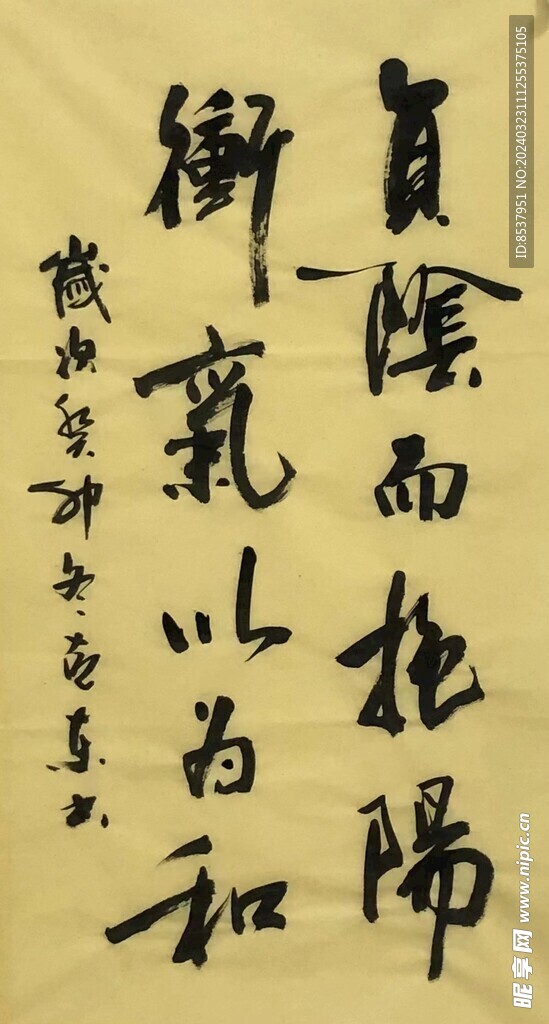 負陰而抱陽
衝氣以为和
歲次癸卯冬克東书
ID:8537951 NO:20240323111255375105
昵享网 www.nipic.cn